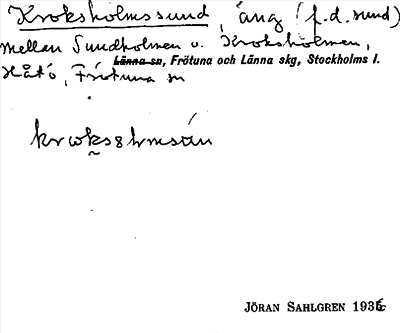 Kroksholmssund, äng (f.d. sund)
mellan Sundholmen o. Kroksholmen,
Länna sn, Frötuna och Länna skg, Stockholms l.
Håtö, Frötuna sn
JÖRAN SAHLGREN 1936